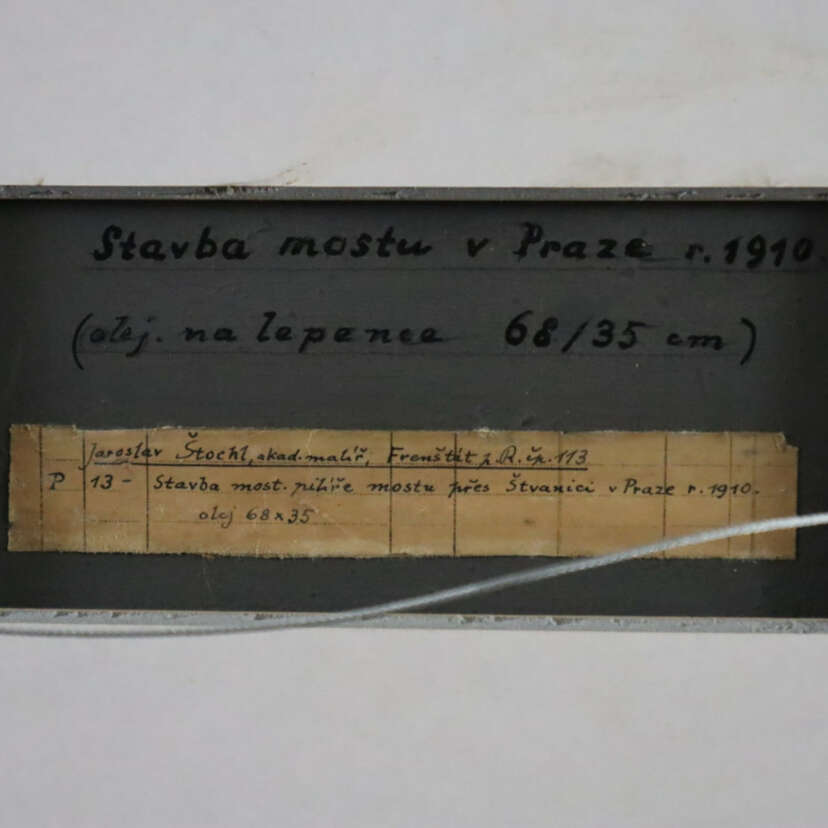 Stavba mostu v Praze r. 1910.
(olej. na lepence 68/35 cm)
Jaroslav Štochl, akad. malíř, Frenštát p. R. čp. 113
P 13 - Stavba most. pilíře mostu přes Štvanici v Praze r. 1910.
olej 68 x 35